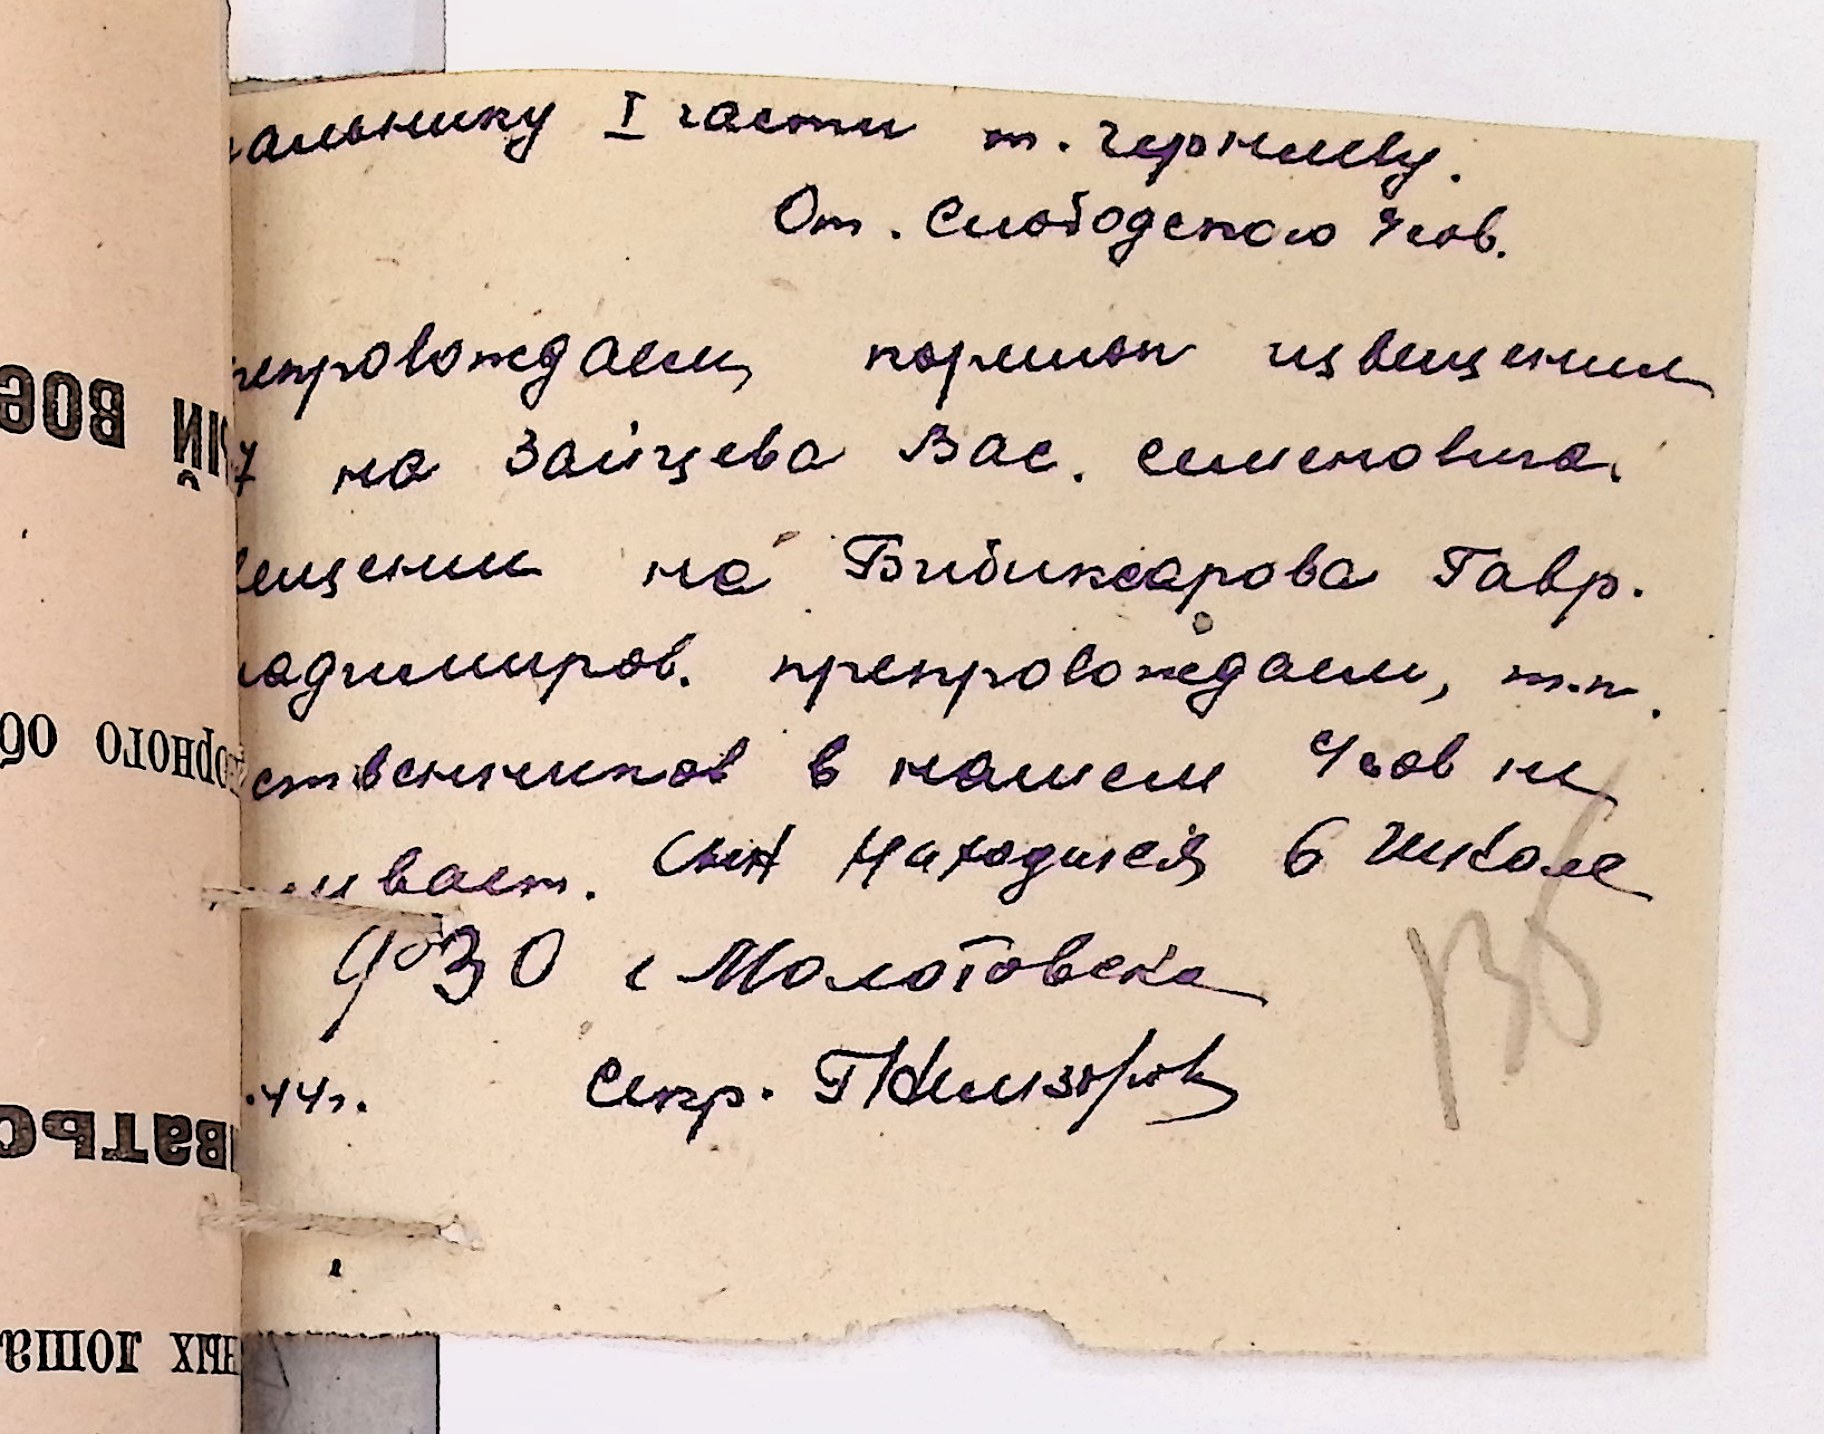 альнику I части т. Черниеву.
От. Слободского Усов.
репровождаем, корешок извещения
7 на Зайцева Вас. Семеновича.
вещении на Бибиксарова Гавр.
ладимиров. препровождаем, т.к.
ственников в нашем Усов не
ивает. Сын Находится в Школе
ФЗО г Молотовска
.44г. Секр.
136
ЫЙ ВОЕ
орного об
ИВАТЬС
ных лоша